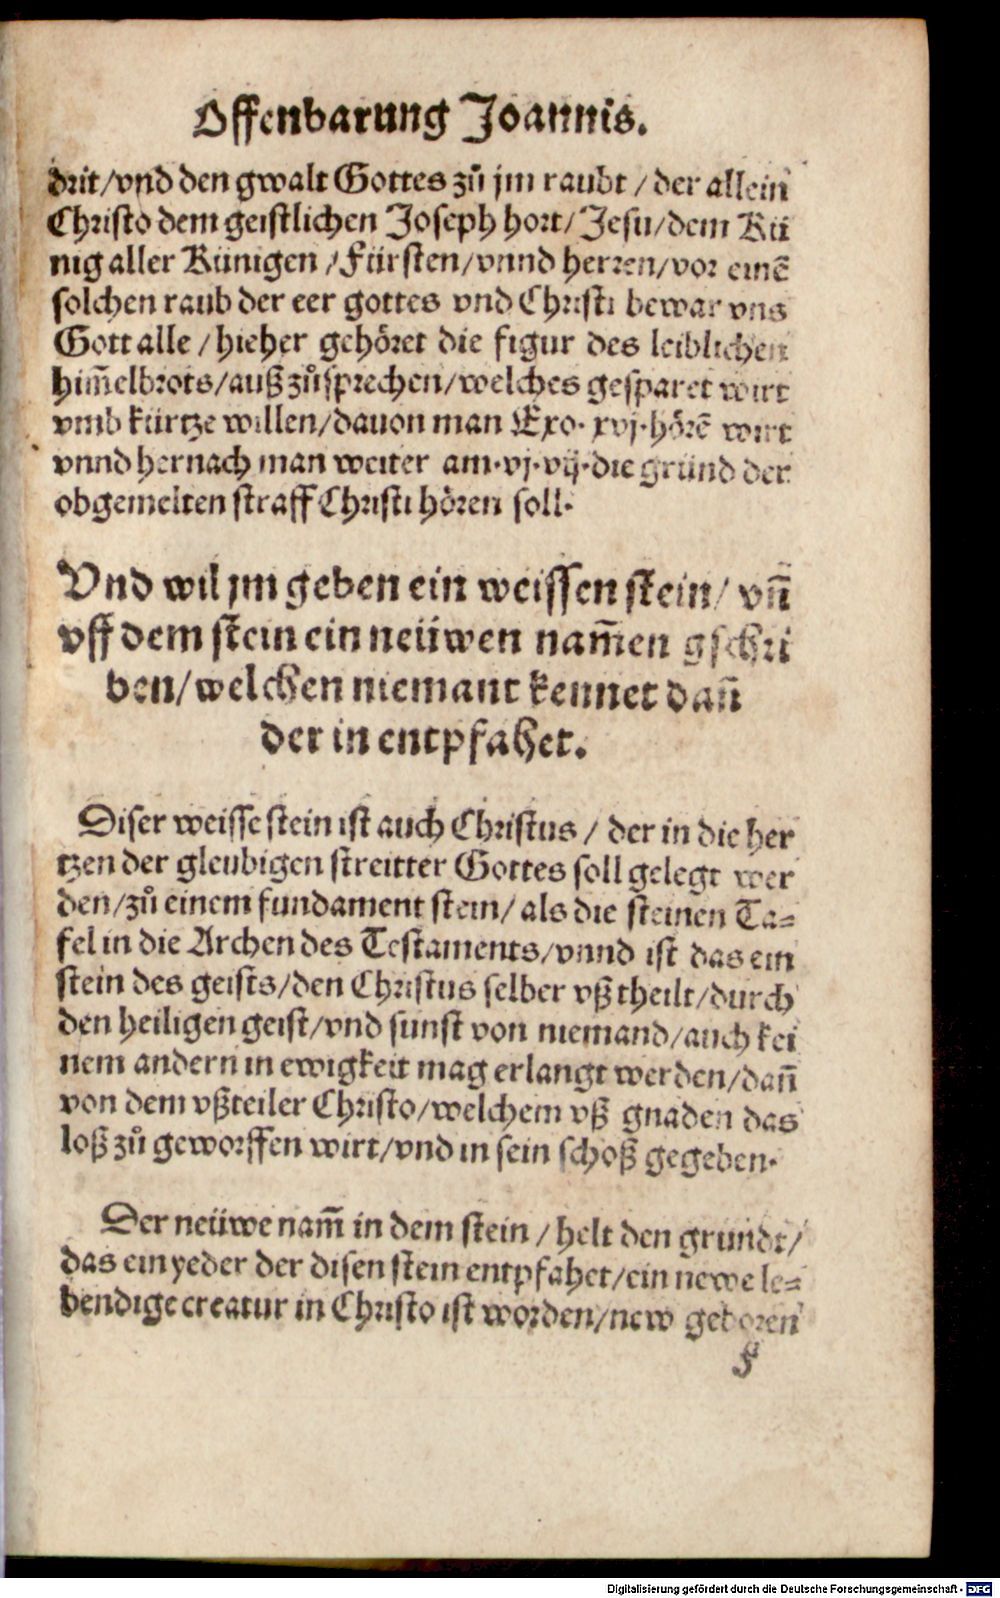 Offenbarung Joannis.
drit/vnd den gwalt Gottes zů jm raubt/der allein
Christo dem geistlichen Joseph hort/Jesu/dem Kü
nig aller Künigen/Fürsten/vnnd herren/vor einē
solchen raub der eer gottes vnd Christi bewar vns
Gott alle/hieher gehöret die figur des leiblichen
him̄elbrots/auß zůsprechen/welches gesparet wirt
vmb kürtze willen/dauon man Exo. xvj. hörē wirt
vnnd hernach man weiter am. vj. vij. die gründ der
obgemelten straff Christi hören soll.
Vnd wil jm geben ein weissen stein/ vñ
vff dem stein ein neüwen nam̄en gschri
ben/welchen niemant kennet dañ
der in entpfahet.
Diser weisse stein ist auch Christus/ der in die her
tzen der gleubigen streitter Gottes soll gelegt wer
den/zů einem fundament stein/ als die steinen Ta⸗
fel in die Archen des Testaments/vnnd ist das ein
stein des geists/den Christus selber vß theilt/durch
den heiligen geist/vnd sunst von niemand/auch kei
nem andern in ewigkeit mag erlangt werden/dañ
von dem vßteiler Christo/welchem vß gnaden das
loß zů geworffen wirt/vnd in sein schoß gegeben.
Der neüwe nam̄ in dem stein/helt den grundt/
das ein yeder der disen stein entpfahet/ein newe le⸗
bendige creatur in Christo ist worden/new geboren
F
Digitalisierung gefördert durch die Deutsche Forschungsgemeinschaft - DFG